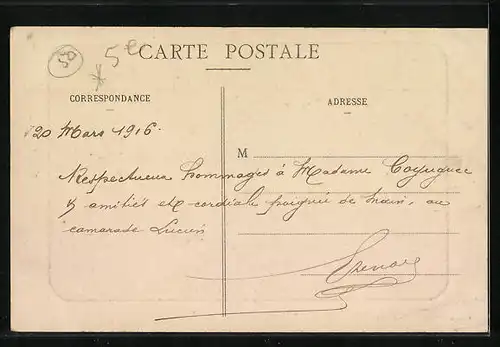 58
* 5e
CARTE POSTALE
CORRESPONDANCE
ADRESSE
20 Mars 1916.
M
Respectueux hommages à Madame
& amitiés et cordiale poignée de main, au
camarade Lucien